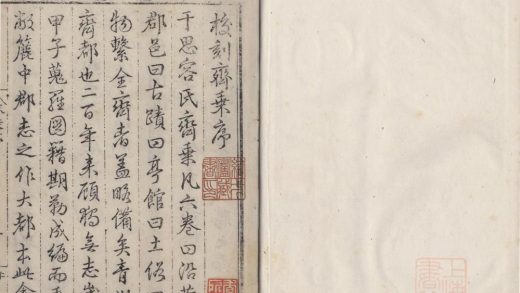 校刻齊乘序
于思容氏齊乘凡六卷曰沿
郡邑曰古蹟曰亭館曰土俗
物繫全齊者蓋略備矣青
齊都也二百年來顧獨無志
甲子蒐羅圖籍期勒成編而
敝簏中郡志之作大都本此